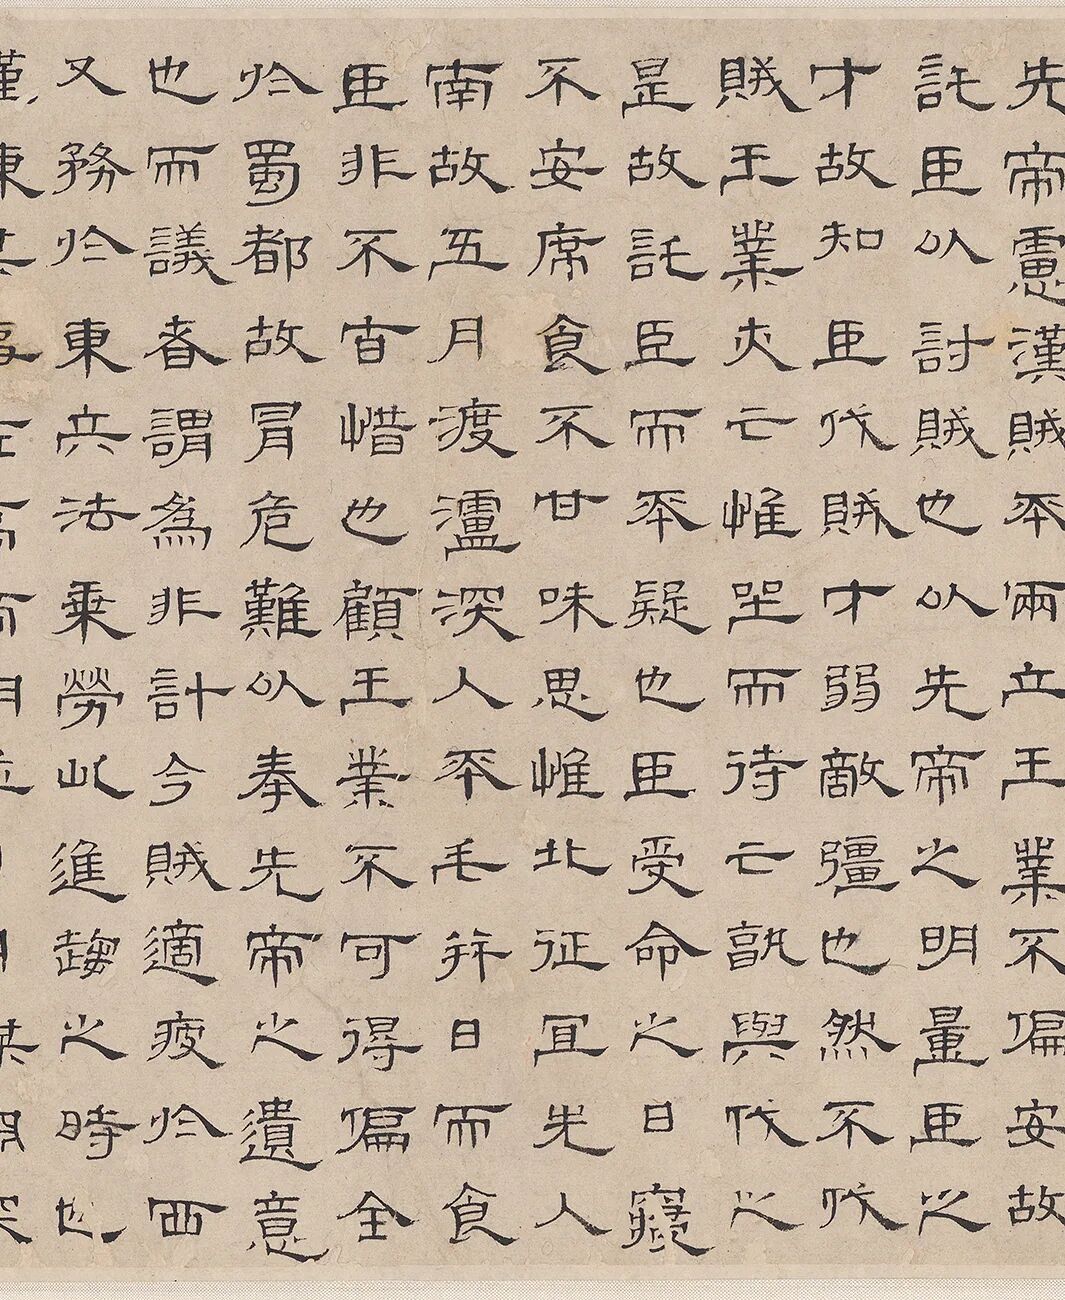 先帝慮漢賊不兩立王業不偏安故
託臣以討賊也以先帝之明量臣之
才故知臣伐賊才弱敵彊也然不伐
賊王業亦亡惟坐而待亡孰與伐之
是故託臣而不疑也臣受命之日寢
不安席食不甘味思惟北征宜先入
南故五月渡瀘深入不毛并日而食
臣非不自惜也顧王業不可得偏全
於蜀都故冒危難以奉先帝之遺意
也而議者謂為非計今賊適疲於西
又務於東兵法乘勞此進趨之時也
謹陳其事左高帝明並